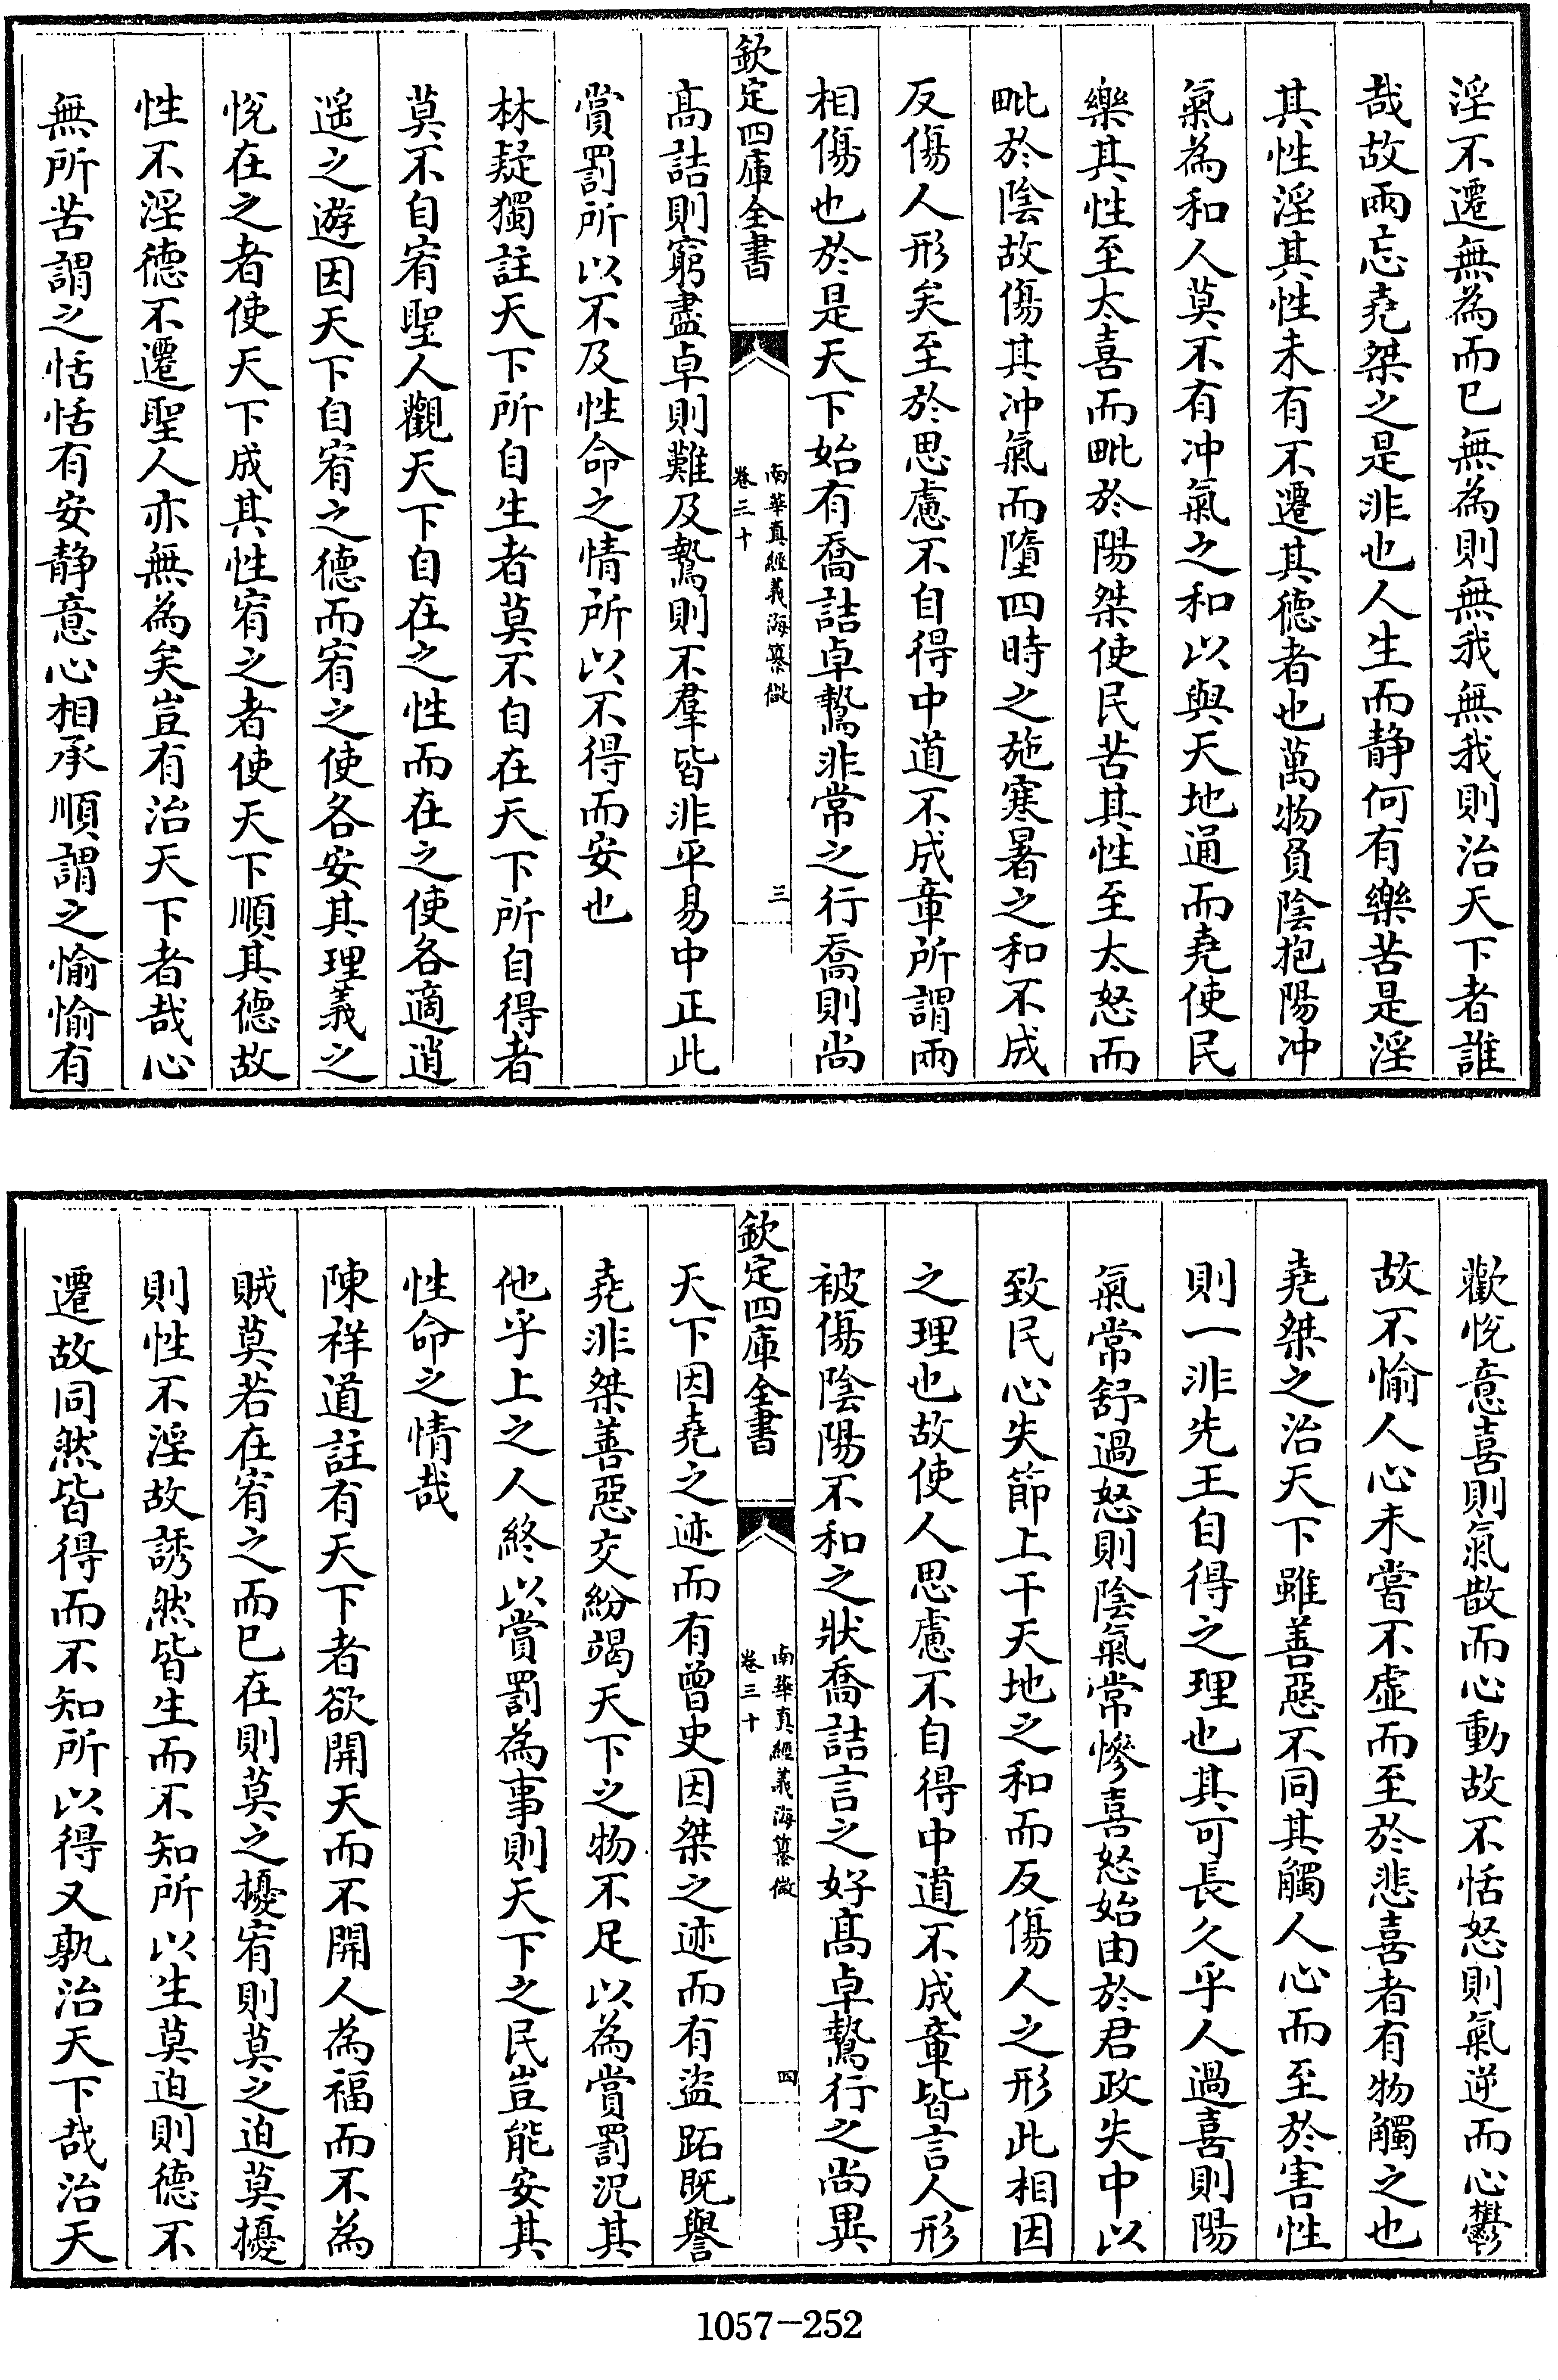 淫不遷無為而已無為則無我無我則治天下者誰
哉故兩忘堯桀之是非也人生而静何有樂苦是淫
其性淫其性未有不遷其德者也萬物負陰抱陽冲
氣為和人莫不有冲氣之和以與天地通而堯使民
樂其性至太喜而毗於陽桀使民苦其性至太怒而
毗於陰故傷其冲氣而墮四時之施寒暑之和不成
反傷人形矣至於思慮不自得中道不成章所謂兩
相傷也於是天下始有喬詰卓鷙非常之行喬則尚
欽定四庫全書
南華真經義海纂微
卷三十
三
髙詰則窮盡卓則難及鷙則不羣皆非平易中正此
賞罰所以不及性命之情所以不得而安也
林疑獨註天下所自生者莫不自在天下所自得者
莫不自宥聖人觀天下自在之性而在之使各適逍
遥之遊因天下自宥之德而宥之使各安其理義之
悅在之者使天下成其性宥之者使天下順其德故
性不淫德不遷聖人亦無為矣豈有治天下者哉心
無所苦謂之恬恬有安静意心相承順謂之愉愉有
歡悅意喜則氣散而心動故不恬怒則氣逆而心鬱
故不愉人心未嘗不虚而至於悲喜者有物觸之也
堯桀之治天下雖善惡不同其觸人心而至於害性
則一非先王自得之理也其可長久乎人過喜則陽
氣常舒過怒則陰氣常慘喜怒始由於君政失中以
致民心失節上干天地之和而反傷人之形此相因
之理也故使人思慮不自得中道不成章皆言人形
被傷陰陽不和之狀喬詰言之好髙卓鷙行之尚異
欽定四庫全書
南華真經義海纂微
卷三十
四
天下因堯之迹而有曾史因桀之迹而有盜跖既譽
堯非桀善惡交紛竭天下之物不足以為賞罰況其
他乎上之人終以賞罰為事則天下之民豈能安其
性命之情哉
陳祥道註有天下者欲開天而不開人為福而不為
賊莫若在宥之而已在則莫之擾宥則莫之迫莫擾
則性不淫故誘然皆生而不知所以生莫迫則德不
遷故同然皆得而不知所以得又孰治天下哉治天
1057-252